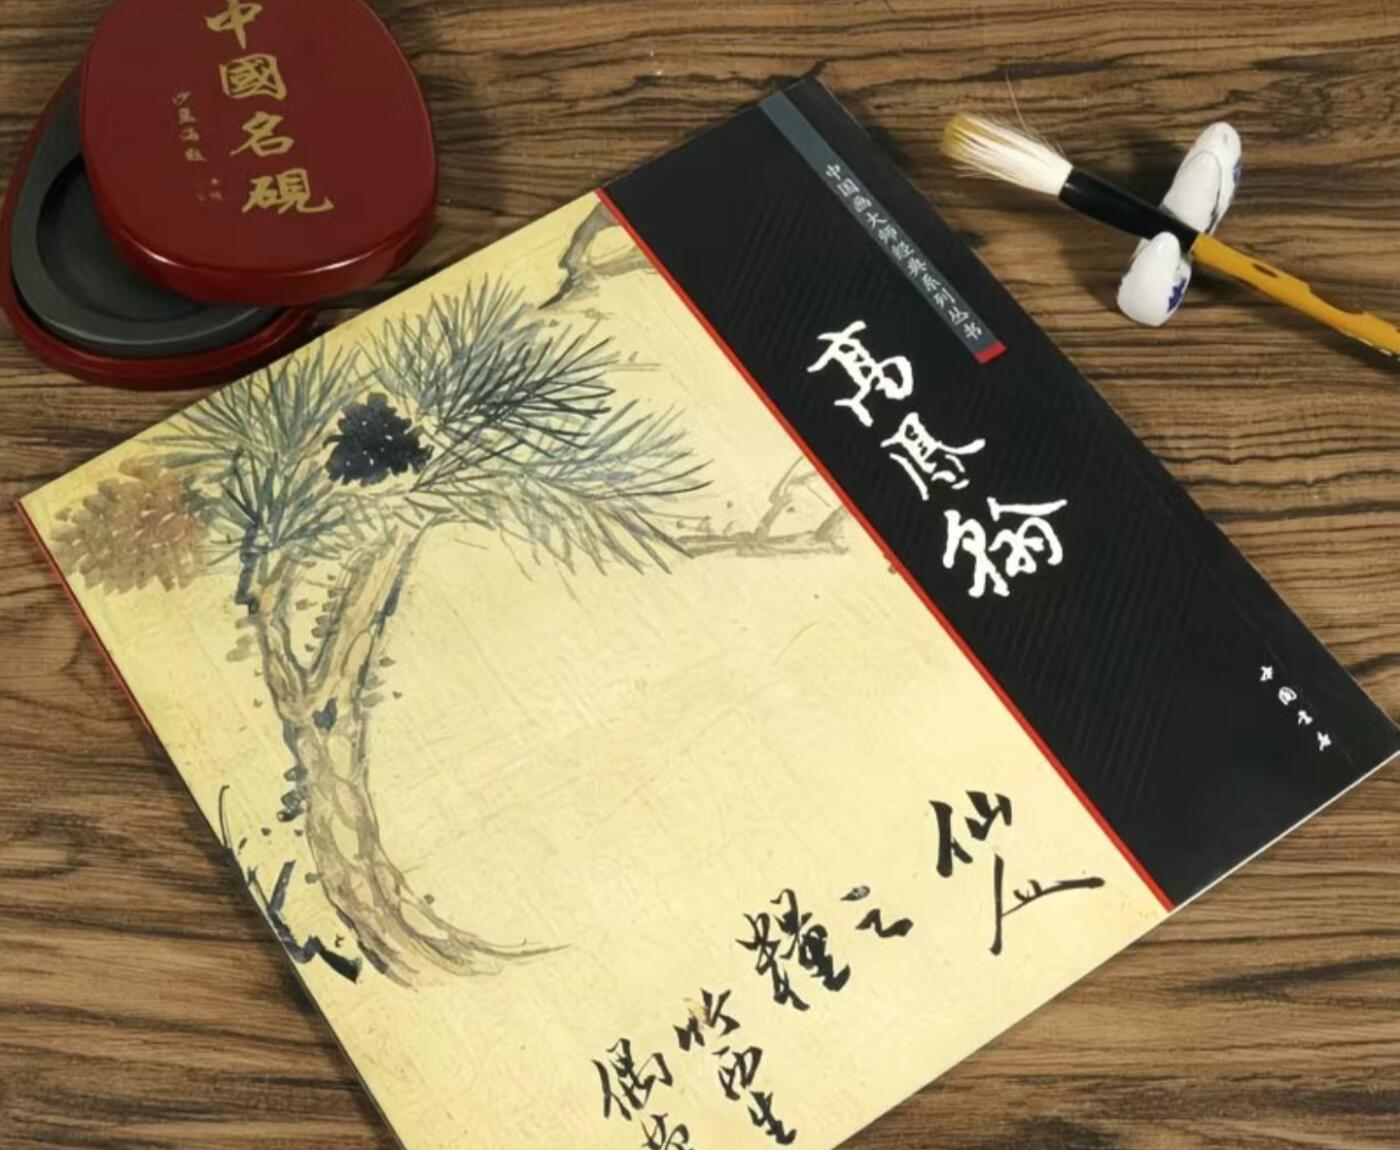 中國名硯
中国画大师经典系列丛书
高凤翰
中国书店
仙人
之
糧
竹西生
偶